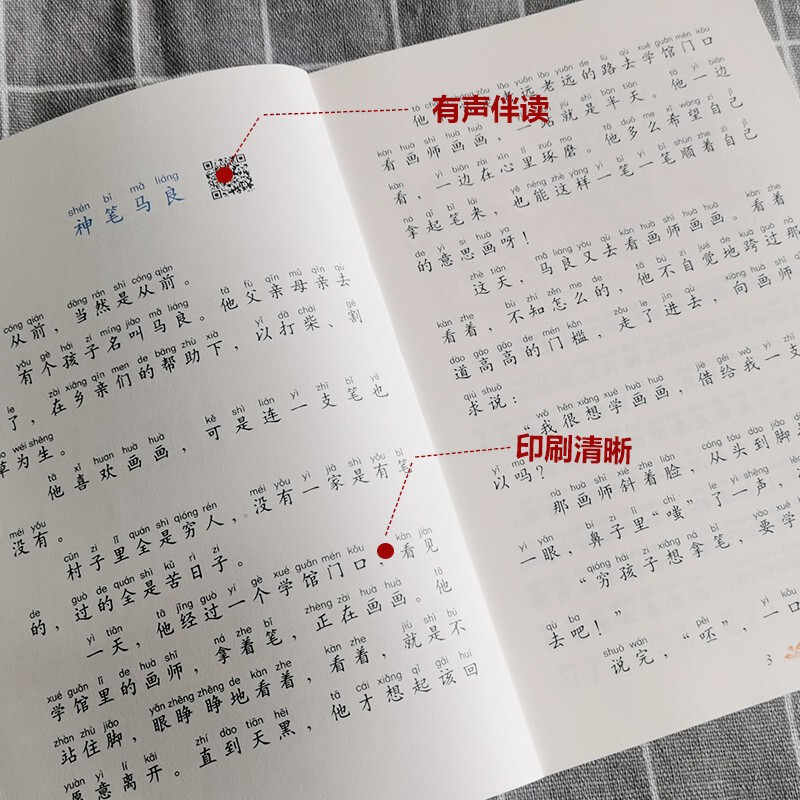 shén bǐ mǎ liáng
神笔马良
cóng qián dāng rán shì cóng qián
从前，当然是从前。
yǒu gè hái zi míng jiào mǎ liáng tā fù qīn mǔ qīn qù
有个孩子名叫马良。他父亲母亲去
le zài xiāng qīn men de bāng zhù xià yǐ dǎ chái gē
了，在乡亲们的帮助下，以打柴、割
wéi shēng
草为生。
tā xǐ huan huà huà kě shì lián yì zhī bǐ yě
他喜欢画画，可是连一支笔也
méi yǒu
没有。
cūn zi lǐ quán shì qióng rén méi yǒu yì jiā shì yǒu bǐ
村子里全是穷人，没有一家是有笔
de guò de quán shì kǔ rì zi
的，过的全是苦日子。
yì tiān tā jīng guò yí gè xué guǎn mén kǒu kàn jiàn
一天，他经过一个学馆门口，看见
xué guǎn lǐ de huà shī ná zhe bǐ zhèng zài huà huà tā
学馆里的画师，拿着笔，正在画画。他
zhàn zhù jiǎo yǎn zhēng zhēng de kàn zhe kàn zhe jiù shì bù
站住脚，眼睁睁地看着，看着，就是不
yuàn yì lí kāi zhí dào tiān hēi tā cái xiǎng qǐ gāi huí
愿意离开。直到天黑，他才想起该回
有声伴读
印刷清晰
lǎo yuǎn de lù qù xué guǎn mén kǒu
老远的路去学馆门口
kàn huà shī huà huà yí zhàn jiù shì bàn tiān tā yì biān
看画师画画，一站就是半天。他一边
kàn yì biān zài xīn lǐ zuó mo tā duō me xī wàng zì jǐ
看，一边在心里琢磨。他多么希望自己
ná qǐ bǐ lái yě néng zhè yàng yì bǐ yì bǐ shùn zhe zì jǐ
拿起笔来，也能这样一笔一笔顺着自己
de yì si huà ya
的意思画呀！
zhè tiān mǎ liáng yòu qù kàn huà shī huà huà kàn zhe
这天，马良又去看画师画画。看着
kàn zhe bù zhī zěn me de tā bú zì jué de kuà guò nà
看着，不知怎么的，他不自觉地跨过那
dào gāo gāo de mén kǎn zǒu le jìn qù xiàng huà shī
道高高的门槛，走了进去，向画师
qiú shuō
求说：
wǒ hěn xiǎng xué huà huà jiè gěi wǒ yì zhī
“我很想学画画，借给我一支
yǐ ma
以吗？
nà huà shī xié zhe liǎn cóng tóu dào jiǎo
那画师斜着脸，从头到脚
yì yǎn bí zi lǐ chī le yì shēng
一眼，鼻子里“嗤”了一声，
qióng hái zi xiǎng ná bǐ yào xué
“穷孩子想拿笔，要学
qù ba
去吧！”
shuō wán pēi yì kǒu
说完，“呸”，一口
3